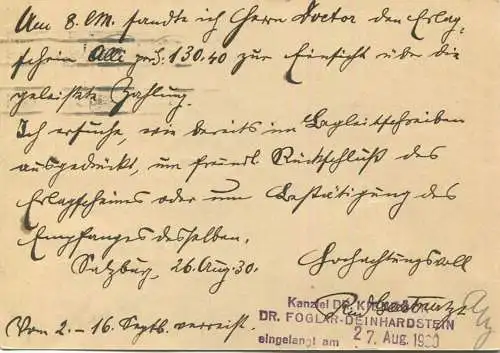 Am 8. M. sandte ich Herrn Doctor den Erlag-
schein per S. 130.40 zur Einsicht über die
geleistete Zahlung.
Ich ersuche, wie bereits im Begleitschreiben
ausgedrückt, um freundl. Rückschluß des
Erlagscheines oder um Bestätigung des
Empfanges desselben.
Salzburg, 26. Aug. 30. Hochachtungsvoll
Kanzlei DR.
DR. FOGLAR-DEINHARDSTEIN
eingelangt am 27. Aug. 1930
Vom 2. - 16. Septb. verreist.